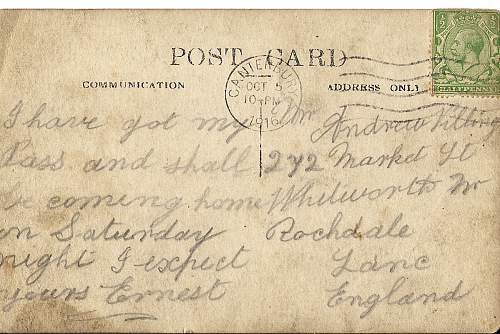 POST CARD
COMMUNICATION
ADDRESS ONLY
CANTERBURY
OCT 5
10 PM
1916
HALFPENNY
I have got my
Pass and shall
be coming home
on Saturday
night I expect
yours Ernest
Mr Andrew
272 Market St
Whitworth Nr
Rochdale
Lanc
England